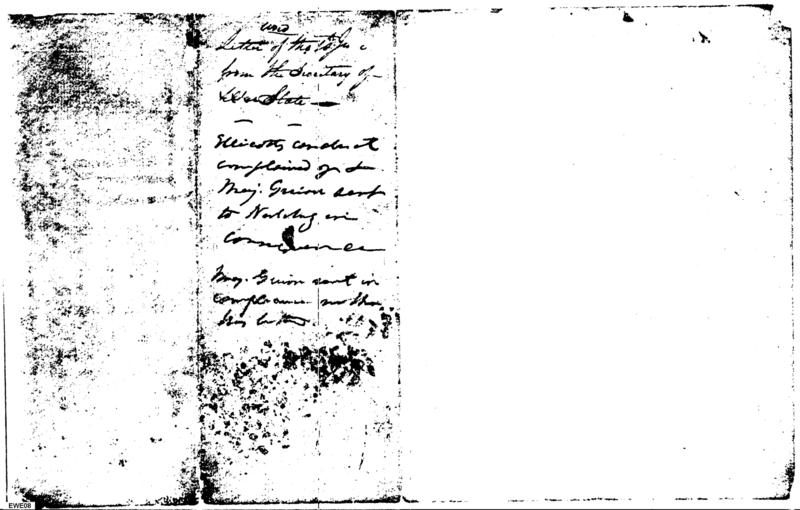 used
Letter of the
from the Secretary of
War State
Ellicotts conduct
complained of &
Maj. Guion sent
to Natchez in
consequence
Maj. Guion sent in
compliance
his letter
EWE08